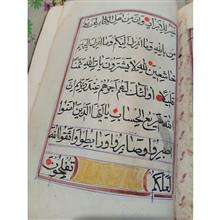 خَيْرٌ لِلْأَبْرَارِ وَإِنَّ مِنْ أَهْلِ الْكِتَابِ لَمَنْ يُؤْ
مِنُ بِاللهِ وَمَا أُنْزِلَ إِلَيْكُمْ وَمَا أُنْزِلَ إِلَيْهِمْ
خَاشِعِينَ لِلّٰهِ لَا يَشْتَرُونَ بِآيَاتِ اللهِ ثَمَنًا
قَلِيلًا أُولٰئِكَ لَهُمْ أَجْرُهُمْ عِنْدَ رَبِّهِمْ إِنَّ
اللهَ سَرِيعُ الْحِسَابِ يَا أَيُّهَا الَّذِينَ آمَنُوا
اصْبِرُوا وَصَابِرُوا وَرَابِطُوا وَاتَّقُوا اللهَ
لَعَلَّكُمْ تُفْلِحُونَ